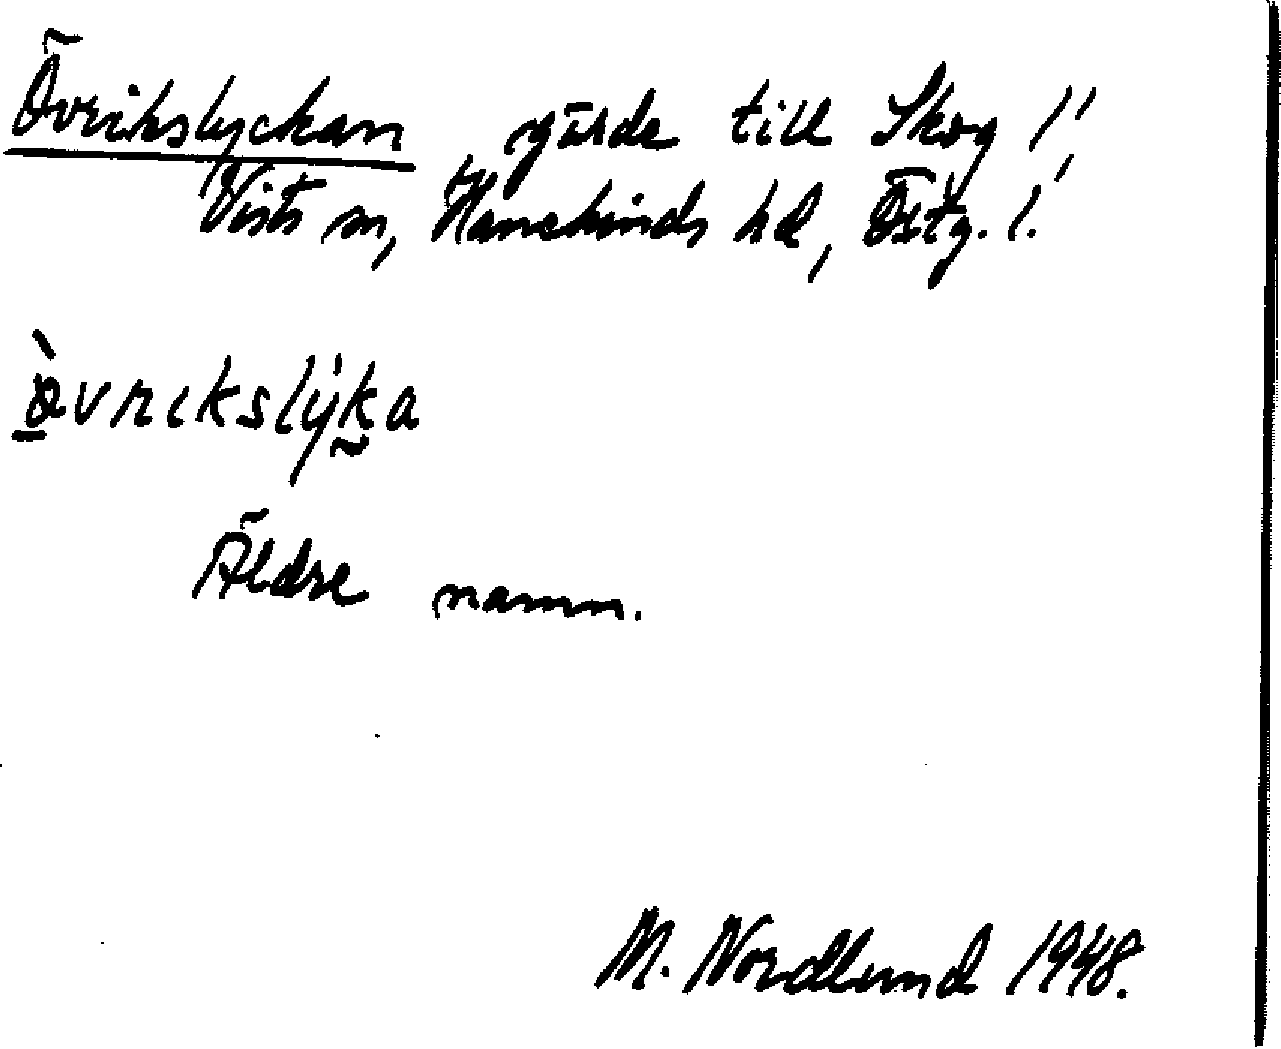 Övrikslyckan gärde till Skog 1/1
Vists sn, Hanekinds hd, Östg. l.
ö̀vrikslýka
Äldre namn.
M. Nordlund 1948.